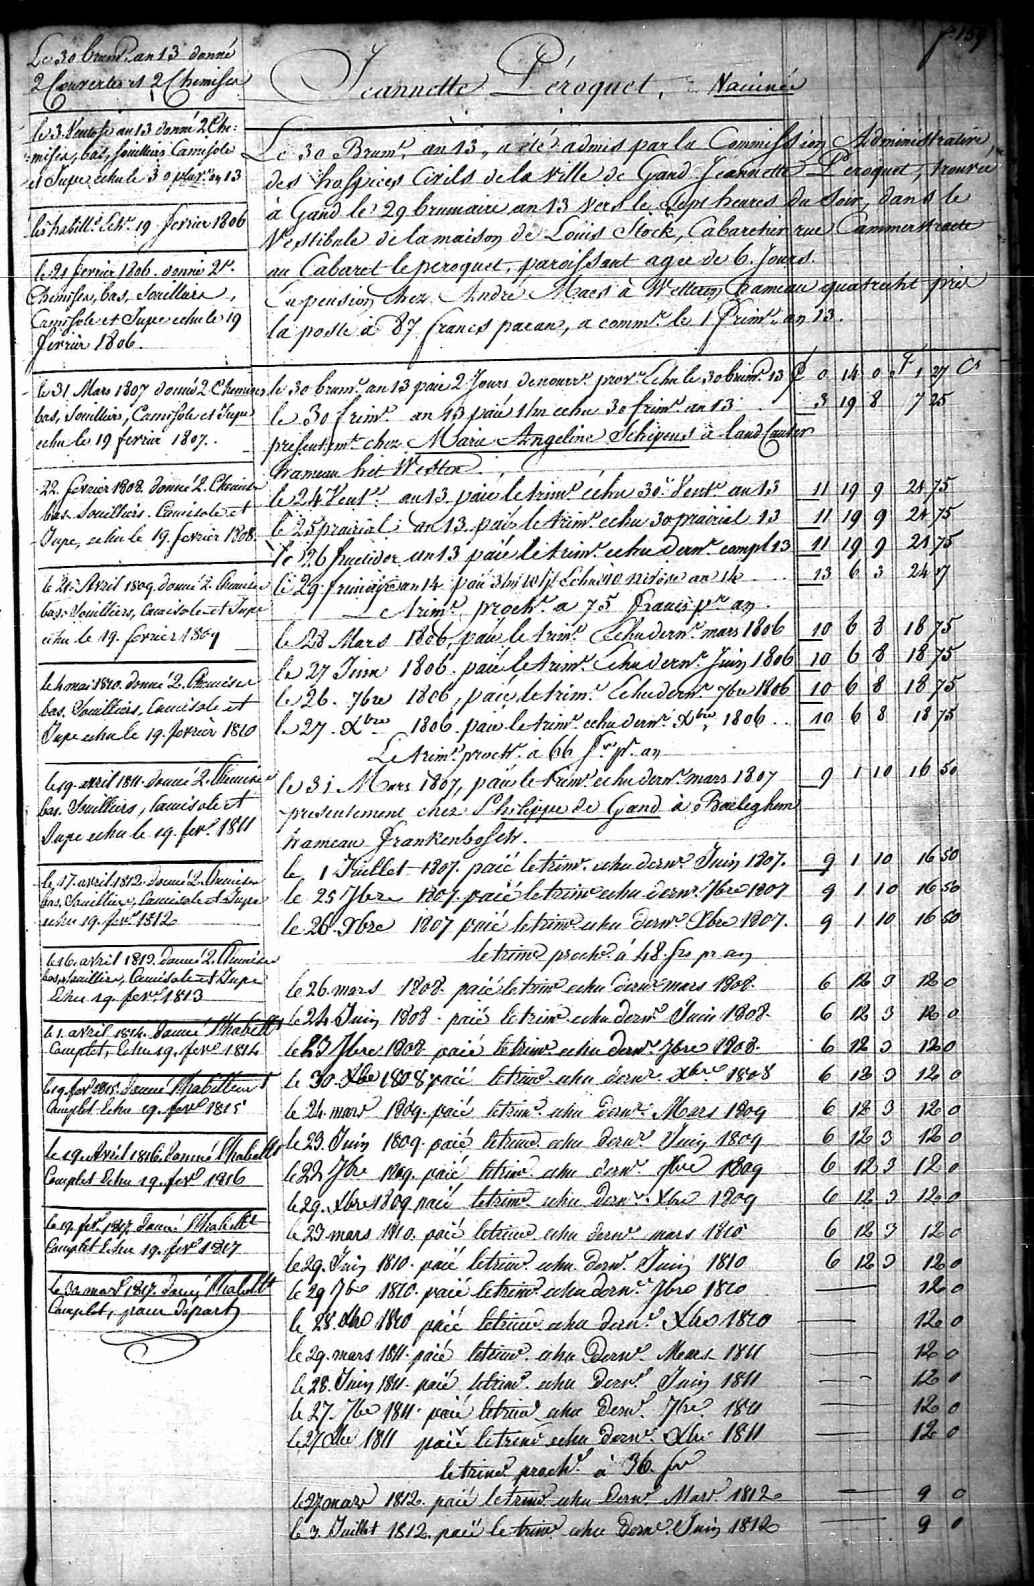 p 159
Jeannette Péroquet, Vaccinée
Le 30 brum.e an 13 donné
2 Couvertes et 2 Chemises
le 3 Ventose an 13 donné 2 Che-
mises, bas, souilliers Camisole
et Jupe echu le 30 pluv.e an 13
19 fevrier 1806
le 21 fevrier 1806. donné 2
Chemises, bas, souilliers,
Camisole et Jupe echu le 19
fevrier 1806.
le 31 Mars 1807 donné 2 Chemises
bas, souilliers, Camisole et Jupe
echu le 19 fevrier 1807.
22. fevrier 1808. donné 2. Chemises
bas. souilliers. Camisole et
Jupe, echu le 19. fevrier 1808.
le 21. Avril 1809 donné 2. Chemises
bas. souilliers, Camisole et Jupe
echu le 19. fevrier 1809
le 4 mai 1810. donné 2. Chemises
bas. souilliers, Camisole et
Jupe echu le 19. fevrier 1810
le 19. avril 1811. donné 2. Chemises
bas. souilliers, Camisole et
Jupe echu le 19. fev.r 1811
le 17. avril 1812. donné 2. Chemises
bas, souilliers, Camisole et Jupe
echu 19. fev.r 1812
le 16. avril 1813. donné 2. Chemises
bas, souilliers, Camisole et Jupe
Echu 19. fev.r 1813
le 1. avril 1814. donné l'habillt
Complet, Echu 19. fev.r 1814
le 19. fev.r 1815. donné l'habillement
Complet Echu 19. fev.r 1815
le 19. Avril 1816. Donné l'habillt
Complet Echu 19. fev.r 1816
le 19. fev.r 1817. donné l'habillt
Complet Echu 19. fev.r 1817
le 31 mars 1817. donné l'habillt
Complet, pour Départ
Le 30 Brum.e an 13, a été admis par la Commission Administrative
des hospices Civils de la Ville de Gand Jeannette Péroquet, trouvée
à Gand le 29 brumaire an 13 vers le sept heures du Soir, dans le
Vestibule de la maison de Louis Stock, Cabaretier rue Cammerstraete
au Cabaret le peroquet, paroissant agée de 6. Jours.
En pension, Chez André Maes à Wetteren hameau quatrecht près
la poste à 87 francs par an, a comm.é le 1 frim.e an 13.
le 30 brum.e an 13 paié 2 Jours de nourr.e prov.re Echu le 30 brum.e 13 £ 0 14 0 F 1 27 Cs
le 30 frim.e an 13 paié 1/m echu 30 frim.e an 13 3 19 8 7 25
presentem.t chez Marie Angeline Schepens à Land Cauter
hameau het Wester
le 24 Vent.e an 13 paié le trim.e echu 30 Vent.e an 13 11 19 9 21 75
le 25 prairial an 13 paié le trim.e echu 30 prairial 13 11 19 9 21 75
le 26 fructidor an 13 paié le trim.e echu dern.r compl 13 11 19 9 21 75
le 29 frimaire an 14 paié 3/m 10/j Echu 10 nivose an 14 13 6 3 24 17
le trim.e proch.n a 75 francs p.r an
le 28 Mars 1806, paié le trim.e Echu dern.r mars 1806 10 6 8 18 75
le 27 Juin 1806. paié le trim.e Echu dern.r Juin 1806 10 6 8 18 75
le 26. 7bre 1806, paié le trim.e Echu dern.r 7bre 1806 10 6 8 18 75
le 27. Xbre 1806, paié le trim.e echu dern.r Xbre 1806 10 6 8 18 75
Le trim.e proch.n a 66 f.cs p.r an
le 31 Mars 1807, paié le trim.e echu dern.r mars 1807 9 1 10 16 50
presentement chez Philippe de Gand à Baeleghem
hameau Frankenbosch.
le 1 Juillet 1807. paié le trim.e echu dern.r Juin 1807. 9 1 10 16 50
le 25 7bre 1807. paié le trim.e echu dern.r 7bre 1807 9 1 10 16 50
le 28 Xbre 1807 paié le trim.e echu dern.r Xbre 1807. 9 1 10 16 50
le trim.e proch.n à 48. frs pr an
le 26. mars 1808. paié le trim.e echu dern.r mars 1808. 6 12 3 12 0
le 24 Juin 1808. paié le trim.e echu dern.r Juin 1808. 6 12 3 12 0
le 23 7bre 1808 paié le trim.e echu dern.r 7bre 1808. 6 12 3 12 0
le 30. Xbre 1808 paié le trim.e echu dern.r Xbre 1808 6 12 3 12 0
le 24. mars 1809. paié le trim.e echu dern.r Mars 1809 6 12 3 12 0
le 23. Juin 1809. paié le trim.e echu dern.r Juin 1809 6 12 3 12 0
le 22 7bre 1809. paié le trim.e echu dern.r 7bre 1809 6 12 3 12 0
le 29. Xbre 1809 paié le trim.e echu dern.r Xbre 1809 6 12 3 12 0
le 23 mars 1810. paié le trim.e echu dern.r mars 1810 6 12 3 12 0
le 29 Juin 1810. paié le trim.e echu dern.r Juin 1810 6 12 3 12 0
le 29 7bre 1810. paié le trim.e echu dern.r 7bre 1810 — 12 0
le 28. Xbre 1810 paié le trim.e echu dern.r Xbre 1810 — 12 0
le 29. mars 1811. paié le trim.e echu dern.r Mars 1811 — 12 0
le 28. Juin 1811. paié le trim.e echu dern.r Juin 1811 — 12 0
le 27. 7bre 1811. paié le trim.e echu dern.r 7bre 1811 — 12 0
le 27 Xbre 1811 paié le trim.e echu dern.r Xbre 1811 — 12 0
le trim.e proch.n à 36. frs
le 27 mars 1812. paié le trim.e echu dern.r Mars 1812 — 9 0
le 3. Juillet 1812. paié le trim.e echu dern.r Juin 1812 — 9 0